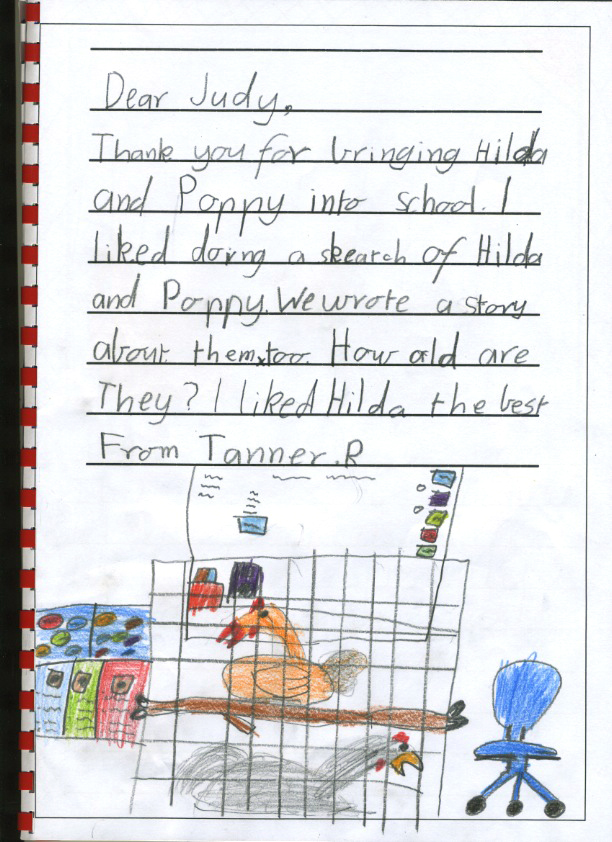 Dear Judy,
Thank you for bringing Hilda
and Poppy into school. I
liked doing a skearch of Hilda
and Poppy. We wrote a story
about them too. How old are
They? I liked Hilda the best
From Tanner.R